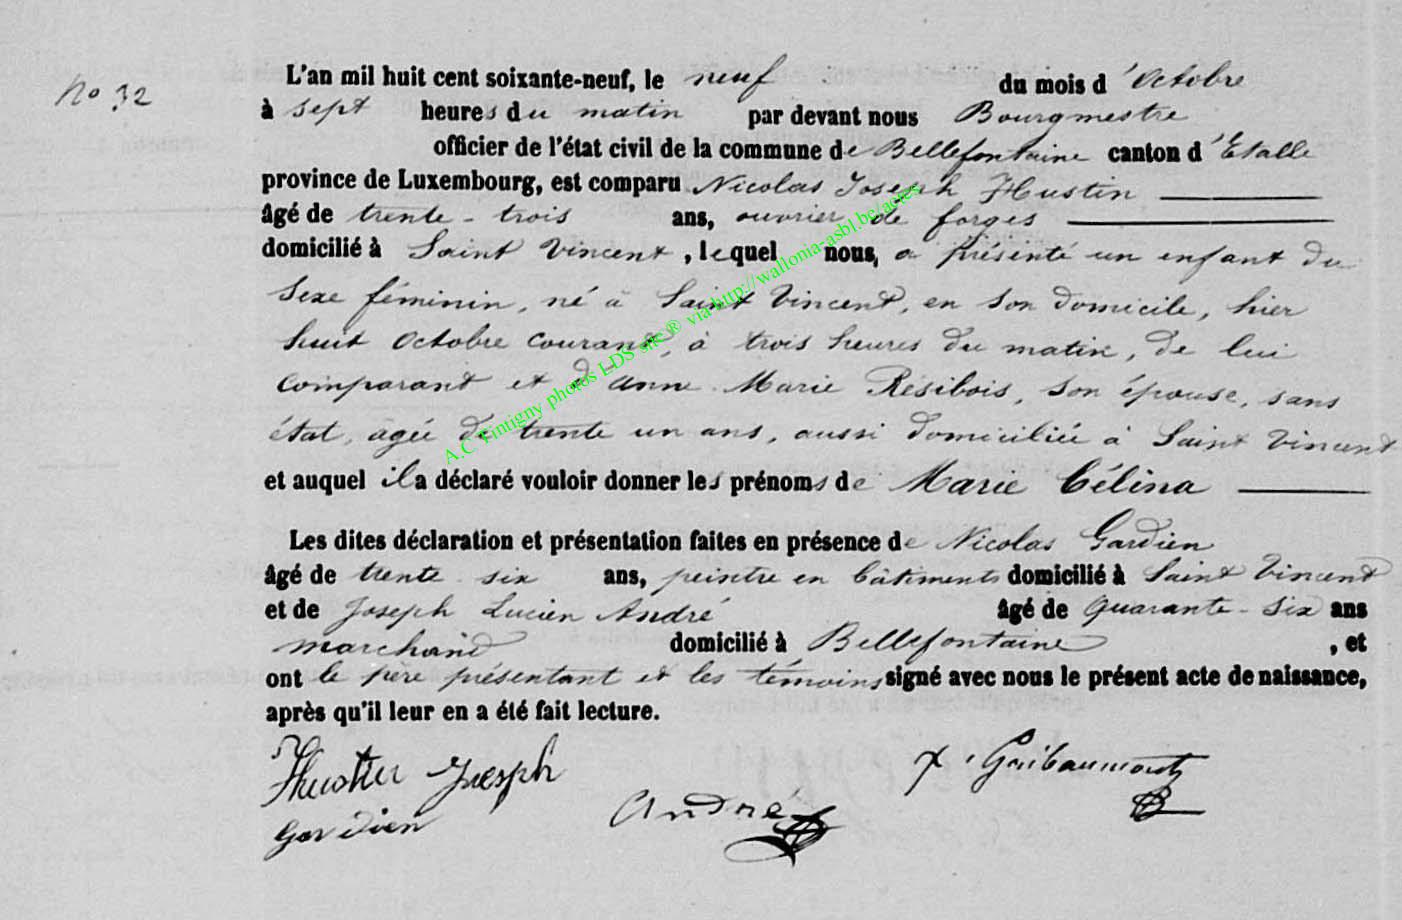 No 32
L'an mil huit cent soixante-neuf, le neuf du mois d'Octobre
à sept heures du matin par devant nous Bourgmestre
officier de l'état civil de la commune de Bellefontaine canton d'Etalle
province de Luxembourg, est comparu Nicolas Joseph Hustin
âgé de trente-trois ans, ouvrier de forges
domicilié à Saint Vincent, lequel nous, a présenté un enfant du
sexe féminin, né à Saint Vincent, en son domicile, hier
huit Octobre courant, à trois heures du matin, de lui
comparant et d'anne Marie Résibois, son épouse, sans
état, agée de trente un ans, aussi domiciliée à Saint Vincent
et auquel il a déclaré vouloir donner les prénoms de Marie Célina
Les dites déclaration et présentation faites en présence de Nicolas Gardien
âgé de trente six ans, peintre en bâtiments domicilié à Saint Vincent
et de Joseph Lucien André âgé de quarante-six ans
marchand domicilié à Bellefontaine, et
ont le père présentant et les témoins signé avec nous le présent acte de naissance,
après qu'il leur en a été fait lecture.
Joesph
Gardien
André
A.C Tintigny photos LDS slc® via http://wallonia-asbl.be/actes